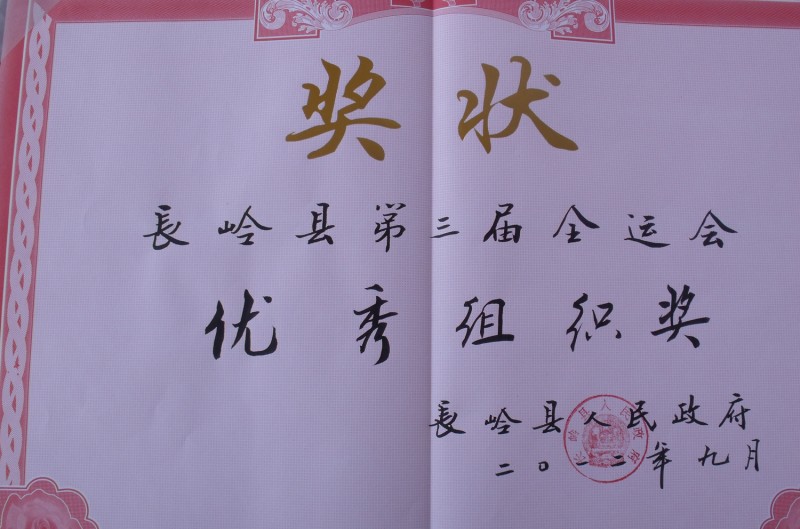 奖状
長岭县第三届全运会
优秀组织奖
長岭县人民政府
二〇一二年九月
长岭县人民政府